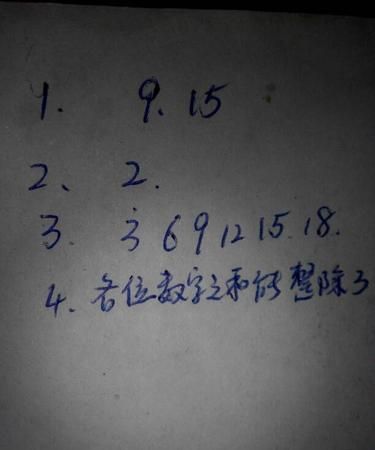 1. 9. 15
2、 2.
3. 3 6 9 12 15. 18.
4. 各位数字之和能整除3